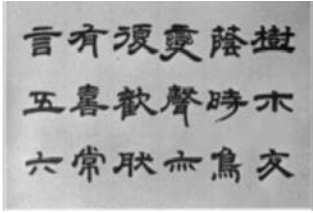 樹木交
蔭時鳥
變聲亦
復歡肰
有喜常
言五六